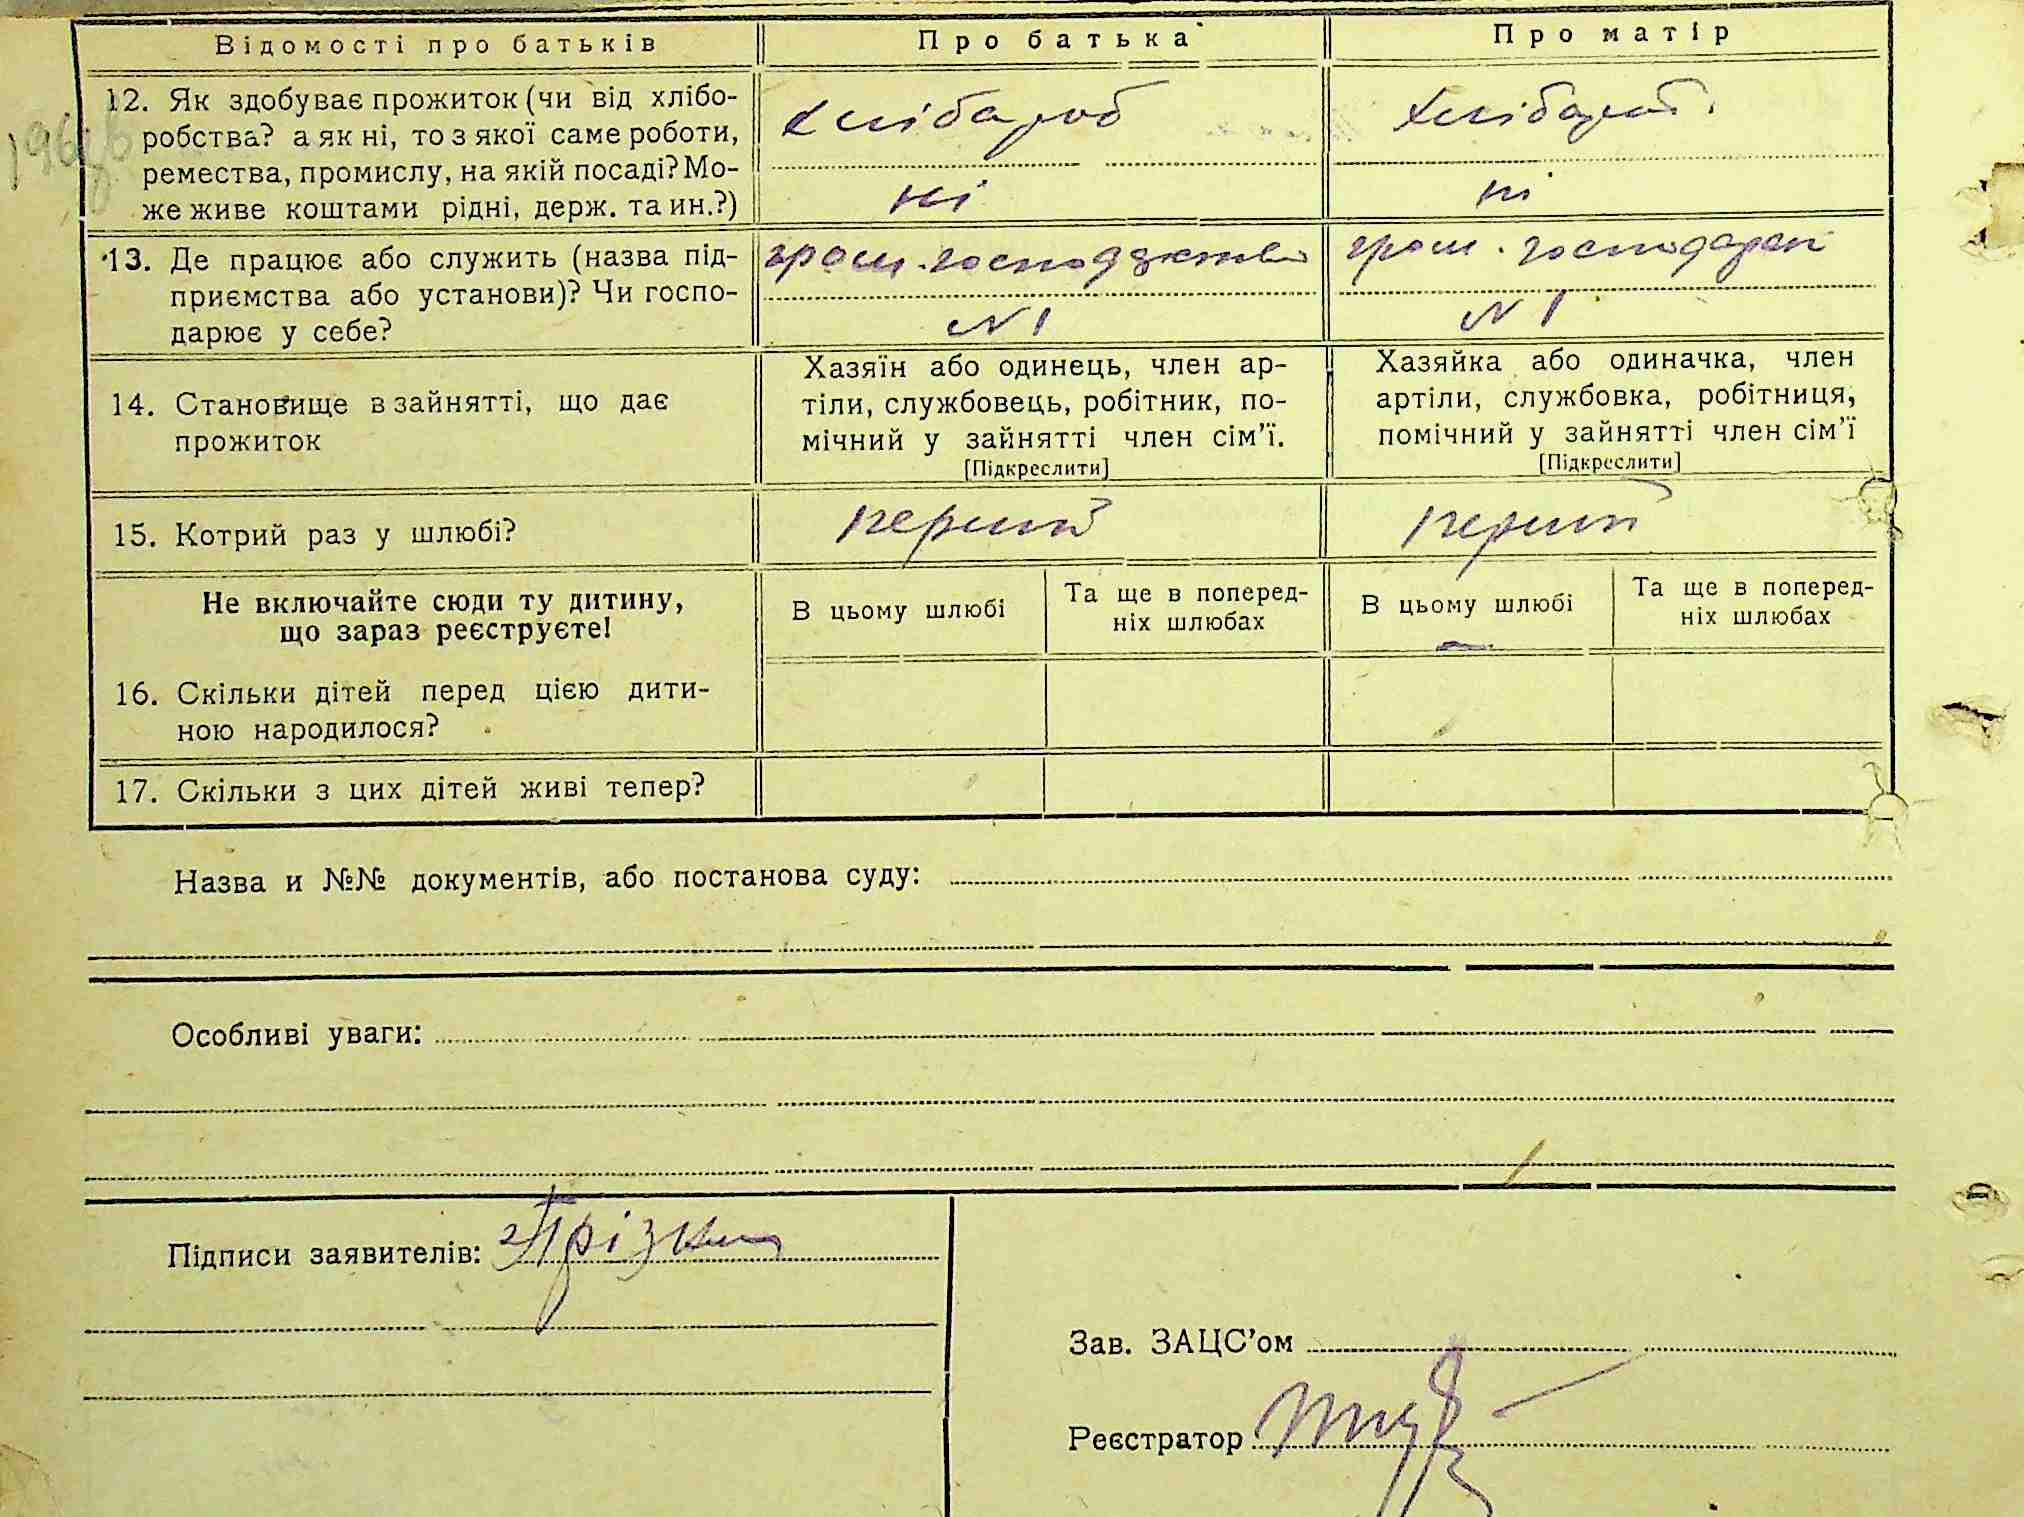 Відомості про батьків Про батька Про матір
12. Як здобуває прожиток (чи від хлібо-
робства? а як ні, то з якої саме роботи,
ремества, промислу, на якій посаді? Мо-
же живе коштами рідні, держ. та ин.?)
хлібороб
ні
хлібороб.
ні
13. Де працює або служить (назва під-
приємства або установи)? Чи госпо-
дарює у себе?
гром. господарство
№ 1
гром. господарст
№ 1
14. Становище в зайнятті, що дає
прожиток
Хазяїн або одинець, член ар-
тіли, службовець, робітник, по-
мічний у зайнятті член сім’ї.
[Підкреслити]
Хазяйка або одиначка, член
артіли, службовка, робітниця,
помічний у зайнятті член сім’ї
[Підкреслити]
15. Котрий раз у шлюбі? перший перший
Не включайте сюди ту дитину,
що зараз реєструєте!
В цьому шлюбі
Та ще в поперед-
ніх шлюбах
В цьому шлюбі
—
Та ще в поперед-
ніх шлюбах
16. Скільки дітей перед цією дити-
ною народилося?
17. Скільки з цих дітей живі тепер?
Назва и №№ документів, або постанова суду:
Особливі уваги:
Підписи заявителів:
Зав. ЗАЦС’ом
Реєстратор